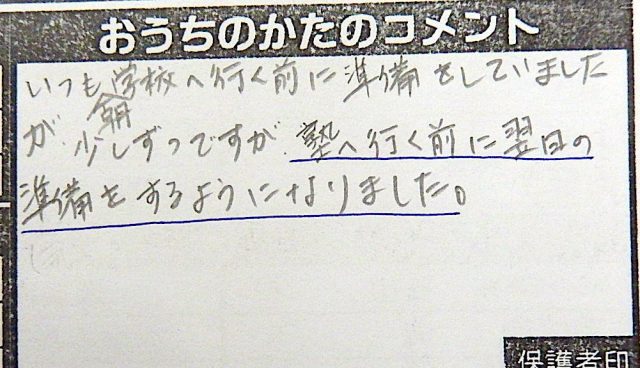 おうちのかたのコメント
いつも朝学校へ行く前に準備をしていました
が、少しずつですが、塾へ行く前に翌日の
準備をするようになりました。
保護者印